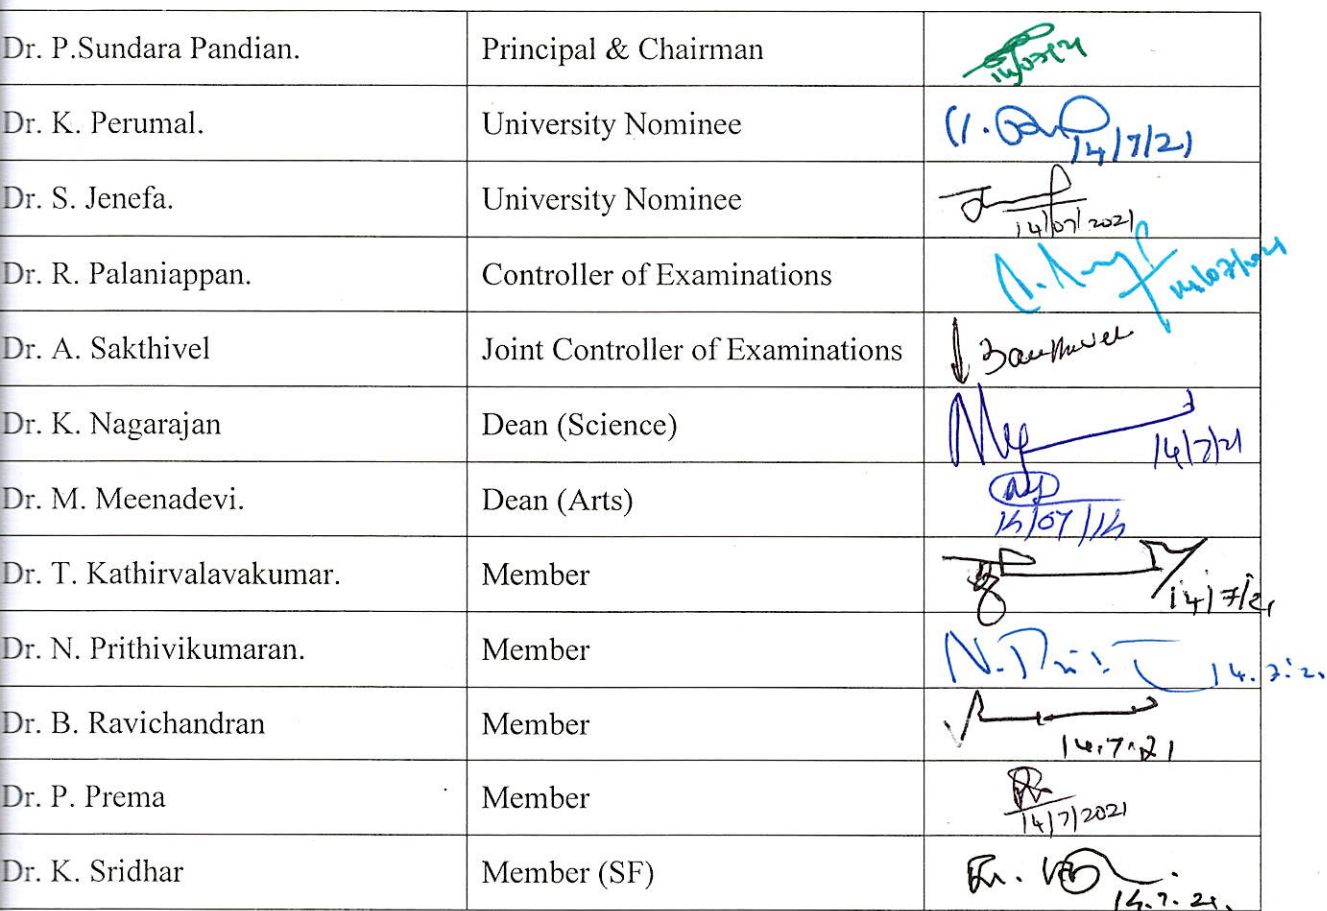 Dr. P.Sundara Pandian. Principal & Chairman
Dr. K. Perumal. University Nominee 14/7/21
Dr. S. Jenefa. University Nominee 14/07/2021
Dr. R. Palaniappan. Controller of Examinations 14/07/2021
Dr. A. Sakthivel Joint Controller of Examinations
Dr. K. Nagarajan Dean (Science) 14/7/21
Dr. M. Meenadevi. Dean (Arts)
Dr. T. Kathirvalavakumar. Member 14/7/21
Dr. N. Prithivikumaran. Member
Dr. B. Ravichandran Member 14.7.21
Dr. P. Prema Member 14/7/2021
Dr. K. Sridhar Member (SF) 14.7.21.